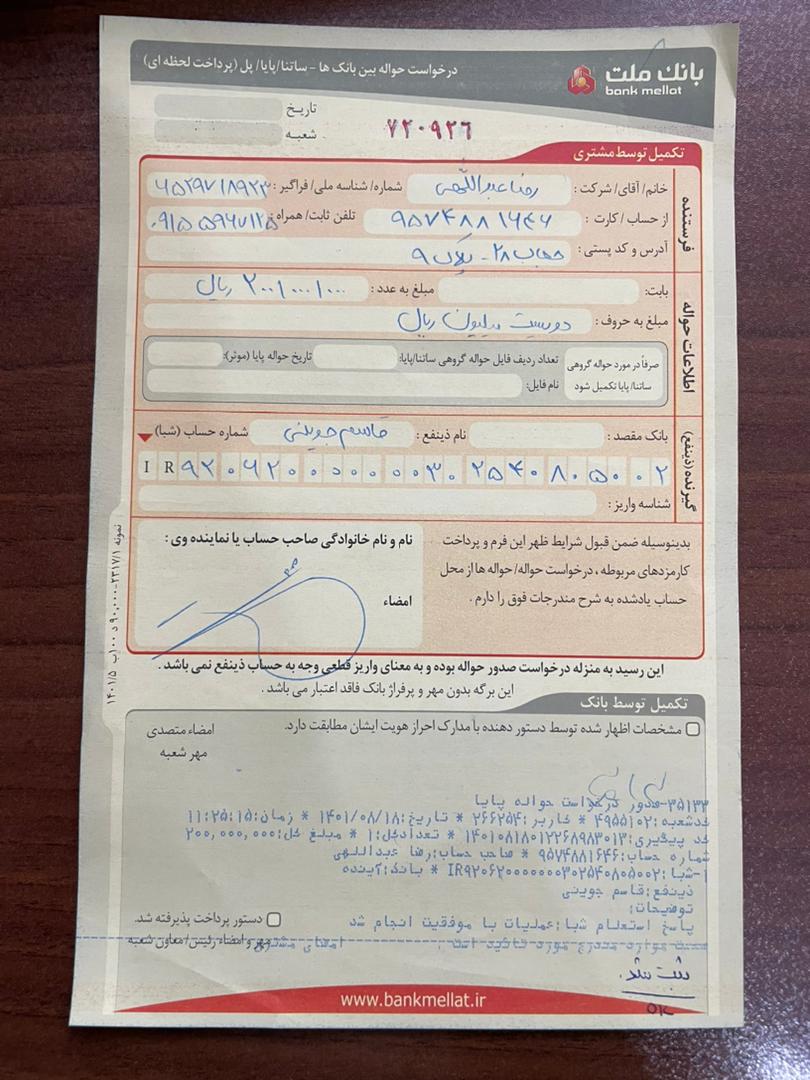 بانک ملت
bank mellat
درخواست حواله بین بانک ها - ساتنا/پایا/ پل (پرداخت لحظه ای)
تاریخ
شعبه
۷۲۰۹۲۶
تکمیل توسط مشتری
فرستنده
خانم/ آقای/ شرکت: رضا عبداللهی شماره/ شناسه ملی/ فراگیر:
از حساب/ کارت: ۹۵۷۴۸۸۱۶۴۶ تلفن ثابت/ همراه: ۰۹۱۵۵۹۶۷۱۲۵
آدرس و کد پستی: ۲۸ - پلاک ۹
اطلاعات حواله
بابت: مبلغ به عدد: ۲۰۰/۰۰۰/۰۰۰ ریال
مبلغ به حروف: دویست میلیون ریال
صرفاً در مورد حواله گروهی ساتنا/ پایا تکمیل شود
تعداد ردیف فایل حواله گروهی ساتنا/پایا: تاریخ حواله پایا (موثر):
نام فایل:
گیرنده (ذینفع)
بانک مقصد: نام ذینفع: قاسم جوینی شماره حساب (شبا)
IR ۹۲۰۶۲۰۰۰۰۰۰۰۳۰۲۵۴۰۸۰۵۰۰۲
شناسه واریز:
بدینوسیله ضمن قبول شرایط ظهر این فرم و پرداخت
کارمزدهای مربوطه، درخواست حواله/ حواله ها از محل
حساب یادشده به شرح مندرجات فوق را دارم.
نام و نام خانوادگی صاحب حساب یا نماینده وی:
امضاء
این رسید به منزله درخواست صدور حواله بوده و به معنای واریز قطعی وجه به حساب ذینفع نمی باشد.
این برگه بدون مهر و پرفراژ بانک فاقد اعتبار می باشد.
تکمیل توسط بانک
مشخصات اظهار شده توسط دستور دهنده با مدارک احراز هویت ایشان مطابقت دارد.
امضاء متصدی
مهر شعبه
۳۵۱۳۳-صدور درخواست حواله پایا
کدشعبه:۴۹۵۵۱۰۲ * کاربر:۲۶۶۲۵۴ * تاریخ:۱۴۰۱/۰۸/۱۸ * زمان:۱۱:۲۵:۱۵
کد پیگیری:۱۴۰۱۰۸۱۸۰۱۲۲۶۸۹۸۳۰۱۳ * تعدادکل:۱ * مبلغ کل:۲۰۰,۰۰۰,۰۰۰
شماره حساب:۹۵۷۴۸۸۱۶۴۶ * صاحب حساب:رضا عبداللهی
۱-شبا:IR۹۲۰۶۲۰۰۰۰۰۰۰۳۰۲۵۴۰۸۰۵۰۰۲ * بانک:آینده
ذینفع:قاسم جوینی
توضیحات:
پاسخ استعلام شبا:عملیات با موفقیت انجام شد
صحت موارد مندرج مورد تائید است. امضای مشتری
دستور پرداخت پذیرفته شد.
مهر و امضاء رئیس/ معاون شعبه
ثبت شد.
OK
www.bankmellat.ir
نمونه ۲۳۱۷/۱-۹۰,۰۰۰ د ۱۰۰ب ۱۴۰۱/۵